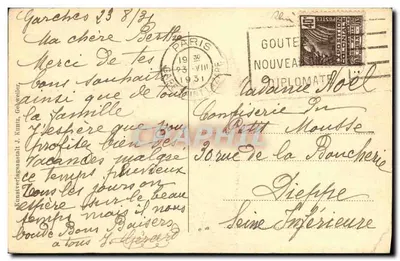 Garches 23/8/31
Ma chère Berthe
Merci de tes
bons souhaits
ainsi que de toute
la famille
J'espère que vous
profitez bien des
vacances malgré
ce temps pluvieux
tous les jours on
espère sur le beau
temps mais il nous
boude Bons Baisers
à tous Gérard
PARIS
1931
GOUTE
NOUVEA
DIPLOMATE
Madame Noël
Confiserie du
Petit Mousse
rue de la Boucherie
Dieppe
Seine Inférieure
Kunstverlagsanstalt J. Kunen, Gebweiler.
Cartorum